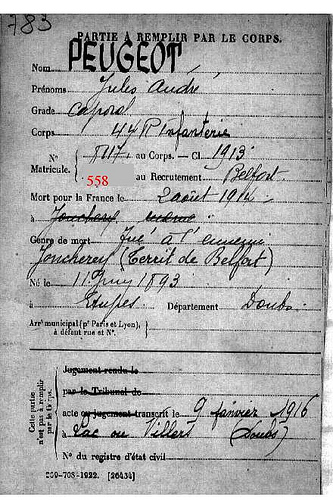 783
PARTIE À REMPLIR PAR LE CORPS.
Nom PEUGEOT
Prénoms Jules André
Grade Caporal
Corps 44 R Infanterie
N° Matricule. { 5117 au Corps. — Cl 1913
558 au Recrutement Belfort
Mort pour la France le 2 août 1914
à Joncherey
Genre de mort Tué à l'ennemi
Joncherey (Territ de Belfort)
Né le 11 Juin 1893
à Etupes Département Doubs
Arr' municipal (p' Paris et Lyon), à défaut rue et N°.
Cette partie n'est pas à remplir par le Corps.
Jugement rendu le
par le Tribunal de
acte ou jugement transcrit le 9 janvier 1916
à Lac ou Villers (Doubs)
N° du registre d'état civil
-708-1922. [26434]